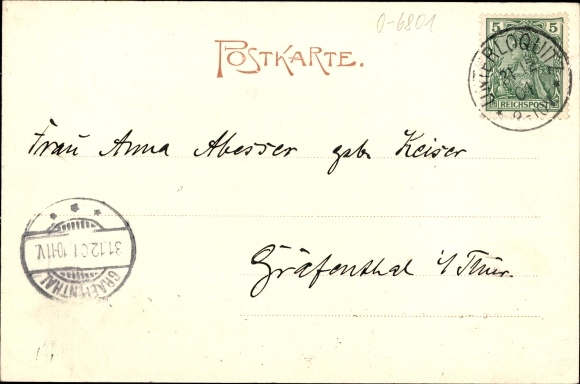 0-6801
POSTKARTE.
5 5
REICHSPOST
UNTERLOQUITZ
01
Frau Anna Abesser geb. Keiser
Gräfenthal i/Thür.
31.12.01 10-11V.
GRAEFENTHAL